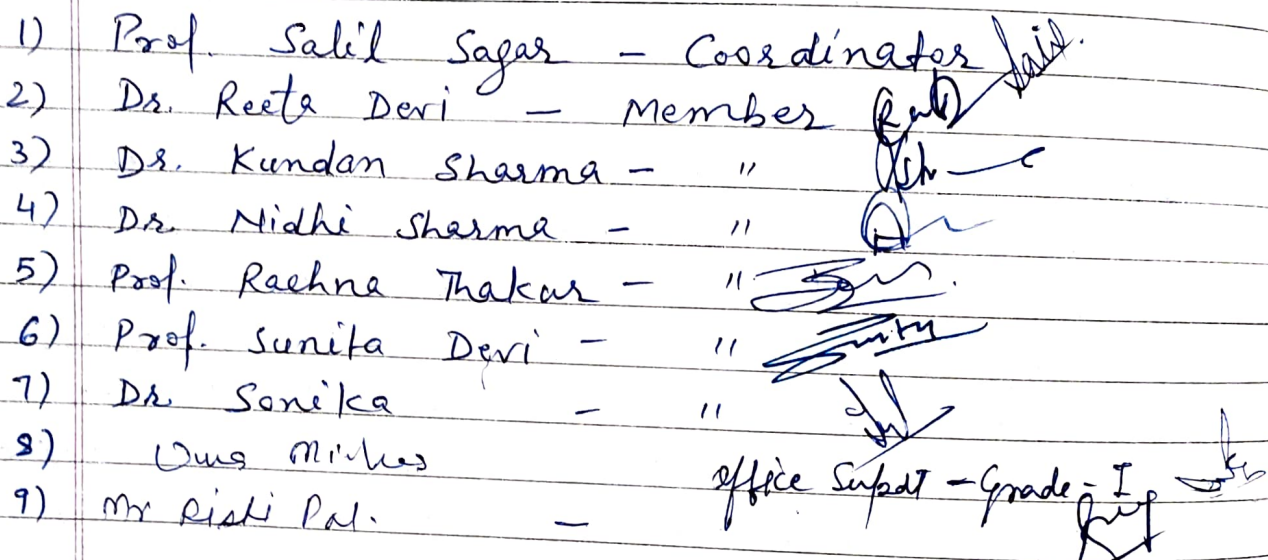 1) Prof. Salil Sagar - Coordinator
2) Dr. Reeta Devi - Member
3) Dr. Kundan Sharma - "
4) Dr. Nidhi Sharma - "
5) Prof. Rachna Thakur - "
6) Prof. Sunita Devi - "
7) Dr. Sonika - "
8) Office Supdt - Grade - I
9) Mr Rishi Pal. -